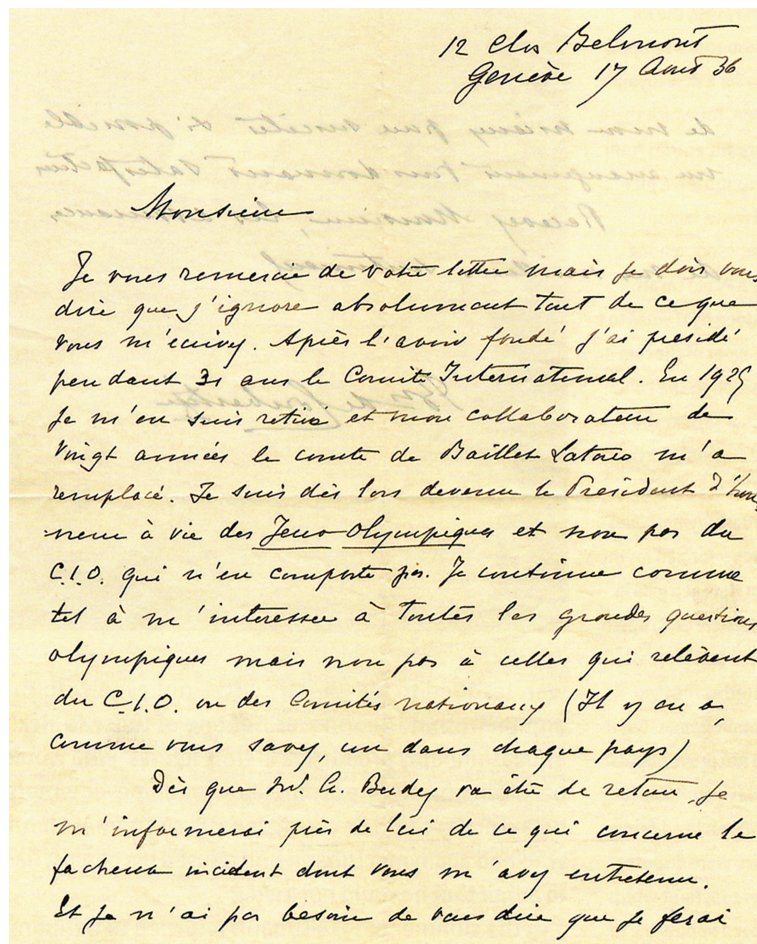 12 Clos Belmont
Genève 17 Août 36
Monsieur
Je vous remercie de votre lettre mais je dois vous
dire que j'ignore absolument tout de ce que
vous m'écrivez. Après l'avoir fondé j'ai présidé
pendant 31 ans le Comité International. En 1925
je m'en suis retiré et mon collaborateur de
vingt années le comte de Baillet Latour m'a
remplacé. Je suis dès lors devenu le Président d'hon
neur à vie des Jeux Olympiques et non pas du
C.I.O. qui n'en comporte pas. Je continue comme
tel à m'intéresser à toutes les grandes questions
olympiques mais non pas à celles qui relèvent
du C.I.O. ou des Comités nationaux (Il y en a,
comme vous savez, un dans chaque pays)
Dès que Mr. A. Berdez va être de retour, je
m'informerai près de lui de ce qui concerne le
facheux incident dont vous m'avez entretenu.
Et je n'ai pas besoin de vous dire que je ferai